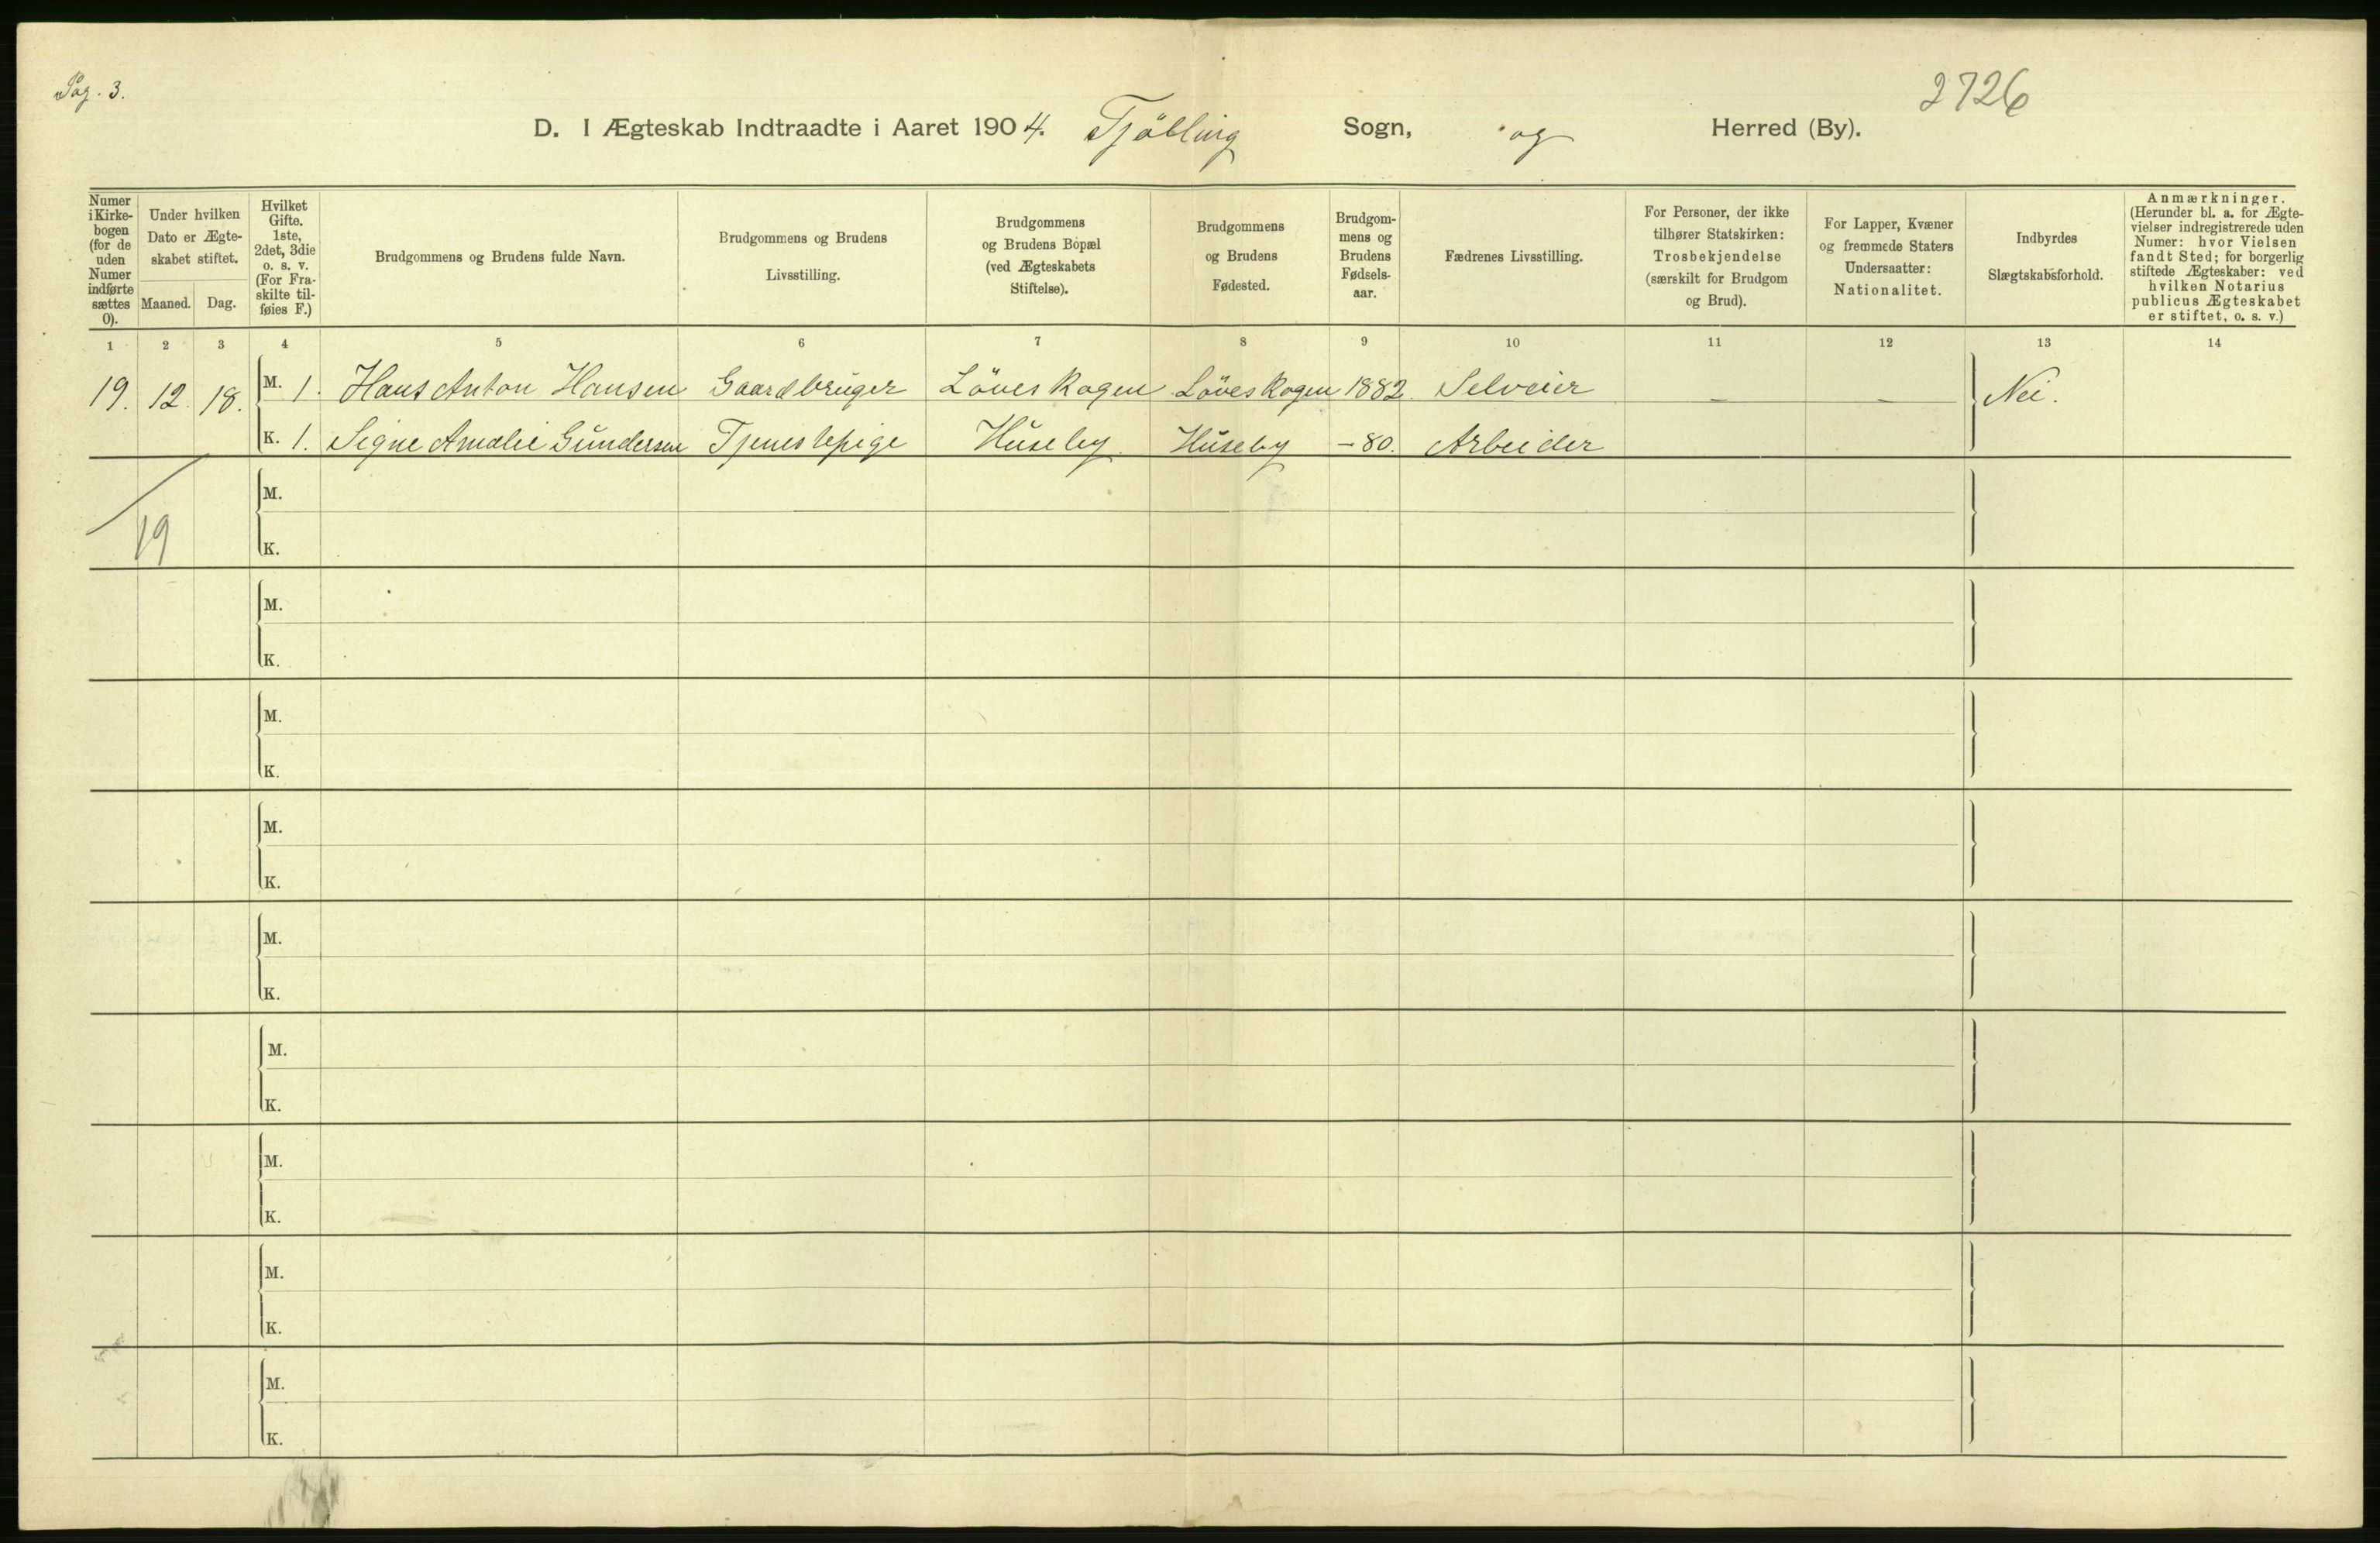 Pag. 3.
2726
D. I Ægteskab Indtraadte i Aaret 1904. Tjölling Sogn, og Herred (By).
Numer i Kirkebogen (for de uden Numer indførte sættes 0).
Under hvilken Dato er Ægteskabet stiftet.
Maaned. Dag.
Hvilket Gifte. 1ste, 2det, 3die o. s. v. (For Fraskilte tilføies F.)
Brudgommens og Brudens fulde Navn.
Brudgommens og Brudens Livsstilling.
Brudgommens og Brudens Bopæl (ved Ægteskabets Stiftelse).
Brudgommens og Brudens Fødested.
Brudgommens og Brudens Fødselsaar.
Fædrenes Livsstilling.
For Personer, der ikke tilhører Statskirken: Trosbekjendelse (særskilt for Brudgom og Brud).
For Lapper, Kvæner og fremmede Staters Undersaatter: Nationalitet.
Indbyrdes Slægtskabsforhold.
Anmærkninger. (Herunder bl. a. for Ægtevielser indregistrerede uden Numer: hvor Vielsen fandt Sted; for borgerlig stiftede Ægteskaber: ved hvilken Notarius publicus Ægteskabet er stiftet, o. s. v.)
1 2 3 4 5 6 7 8 9 10 11 12 13 14
19. 12. 18. M. 1. Hans Anton Hansen Gaardbruger Löveskogen Löveskogen 1882 Selveier — — Nei.
K. 1. Signe Amalie Gundersen Tjenestepige Huseby Huseby -80. Arbeider
19
M.
K.
M.
K.
M.
K.
M.
K.
M.
K.
M.
K.
M.
K.
M.
K.
M.
K.